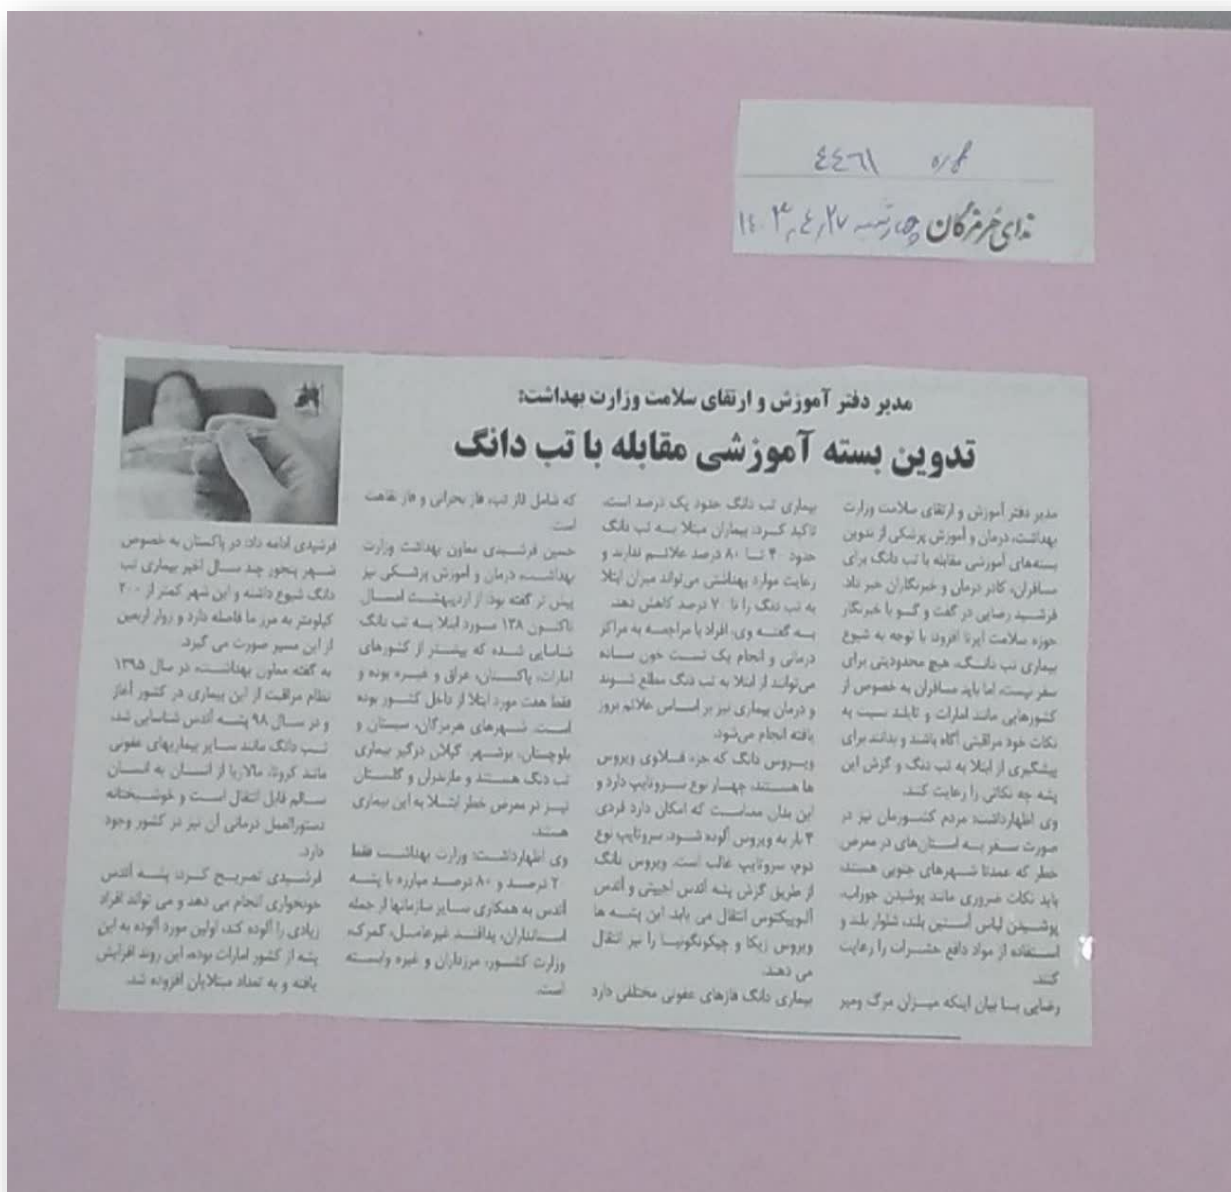 شماره ٤٤٦١
ندای هرمزگان چهارشنبه ١٤٠٣,٤,٢٧
مدیر دفتر آموزش و ارتقای سلامت وزارت بهداشت:
تدوین بسته آموزشی مقابله با تب دانگ
مدیر دفتر آموزش و ارتقای سلامت وزارت
بهداشت، درمان و آموزش پزشکی از تدوین
بسته‌های آموزشی مقابله با تب دانگ برای
مسافران، کادر درمان و خبرنگاران خبر داد.
فرشید رضایی در گفت و گو با خبرنگار
حوزه سلامت ایرنا افزود: با توجه به شیوع
بیماری تب دانگ، هیچ محدودیتی برای
سفر نیست، اما باید مسافران به خصوص از
کشورهایی مانند امارات و تایلند نسبت به
نکات خود مراقبتی آگاه باشند و بدانند برای
پیشگیری از ابتلا به تب دنگ و گزش این
پشه چه نکاتی را رعایت کنند.
وی اظهارداشت: مردم کشورمان نیز در
صورت سفر به استان‌های در معرض
خطر که عمدتا شهرهای جنوبی هستند،
باید نکات ضروری مانند پوشیدن جوراب،
پوشیدن لباس آستین بلند، شلوار بلند و
استفاده از مواد دافع حشرات را رعایت
کنند.
رضایی با بیان اینکه میزان مرگ ومیر
بیماری تب دانگ حدود یک درصد است،
تاکید کرد: بیماران مبتلا به تب دانگ
حدود ۴۰ تا ۸۰ درصد علائم ندارند و
رعایت موارد بهداشتی می‌تواند میزان ابتلا
به تب دنگ را تا ۷۰ درصد کاهش دهند.
به گفته وی، افراد با مراجعه به مراکز
درمانی و انجام یک تست خون ساده
می‌توانند از ابتلا به تب دنگ مطلع شوند
و درمان بیماری نیز بر اساس علائم بروز
یافته انجام می‌شود.
ویروس دانگ که جزء فلاوی ویروس
ها هستند، چهار نوع سروتایپ دارد و
این بدان معناست که امکان دارد فردی
۴ بار به ویروس آلوده شود. سروتایپ نوع
دوم، سروتایپ غالب است. ویروس دانگ
از طریق گزش پشه آئدس اجیپتی و آئدس
آلبوپیکتوس انتقال می یابد این پشه ها
ویروس زیکا و چیکونگونیا را نیز انتقال
می دهند.
بیماری دانگ فازهای عفونی مختلفی دارد
که شامل فاز تب، فاز بحرانی و فاز نقاهت
است.
حسین فرشیدی معاون بهداشت وزارت
بهداشت، درمان و آموزش پزشکی نیز
پیش تر گفته بود: از اردیبهشت امسال
تاکنون ۱۳۸ مورد ابتلا به تب دانگ
شناسایی شده که بیشتر از کشورهای
امارات، پاکستان، عراق و غیره بوده و
فقط هفت مورد ابتلا از داخل کشور بوده
است. شهرهای هرمزگان، سیستان و
بلوچستان، بوشهر، گیلان درگیر بیماری
تب دنگ هستند و مازندران و گلستان
نیز در معرض خطر ابتلا به این بیماری
هستند.
وی اظهارداشت: وزارت بهداشت فقط
۲۰ درصد و ۸۰ درصد مبارزه با پشه
آئدس به همکاری سایر سازمانها از جمله
استانداران، پدافند غیرعامل، گمرک،
وزارت کشور، مرزداران و غیره وابسته
است.
فرشیدی ادامه داد: در پاکستان به خصوص
شهر پنجور چند سال اخیر بیماری تب
دانگ شیوع داشته و این شهر کمتر از ۲۰۰
کیلومتر به مرز ما فاصله دارد و زوار اربعین
از این مسیر صورت می گیرد.
به گفته معاون بهداشت، در سال ۱۳۹۵
نظام مراقبت از این بیماری در کشور آغاز
و در سال ۹۸ پشه آئدس شناسایی شد،
تب دانگ مانند سایر بیماریهای عفونی
مانند کرونا، مالاریا از انسان به انسان
سالم قابل انتقال است و خوشبختانه
دستورالعمل درمانی آن نیز در کشور وجود
دارد.
فرشیدی تصریح کرد: پشه آئدس
خونخواری انجام می دهد و می تواند افراد
زیادی را آلوده کند، اولین مورد آلوده به این
پشه از کشور امارات بوده، این روند افزایش
یافته و به تعداد مبتلایان افزوده شد.